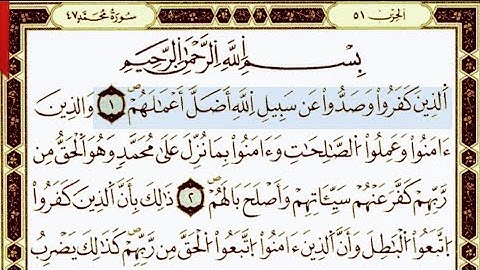 الحزب ٥١
سورة محمد ٤٧
بِسْمِ اللَّهِ الرَّحْمَٰنِ الرَّحِيمِ
الَّذِينَ كَفَرُوا وَصَدُّوا عَن سَبِيلِ اللَّهِ أَضَلَّ أَعْمَٰلَهُمْ ۝١ وَالَّذِينَ
ءَامَنُوا وَعَمِلُوا الصَّٰلِحَٰتِ وَءَامَنُوا بِمَا نُزِّلَ عَلَىٰ مُحَمَّدٍ وَهُوَ الْحَقُّ مِن
رَّبِّهِمْ كَفَّرَ عَنْهُمْ سَيِّـَٔاتِهِمْ وَأَصْلَحَ بَالَهُمْ ۝٢ ذَٰلِكَ بِأَنَّ الَّذِينَ كَفَرُوا
اتَّبَعُوا الْبَٰطِلَ وَأَنَّ الَّذِينَ ءَامَنُوا اتَّبَعُوا الْحَقَّ مِن رَّبِّهِمْ كَذَٰلِكَ يَضْرِبُ